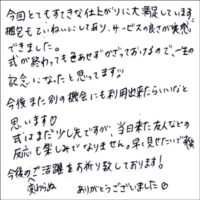 今回とてもすてきな仕上がりに大満足しています!
梱包もていねいにしてあり、サービスの良さが実感
できました。
式が終わっても色あせずかざっておけるので、一生の
記念になったと思ってます!!
今後また別の機会にも利用出来たらいいなと
思います♡
式はまだ少し先ですが、当日来た友人などの
反応も楽しみでなりません。早く見せたいです
今後のご活躍をお祈り致しております!
変わらぬ
ありがとうございました♡